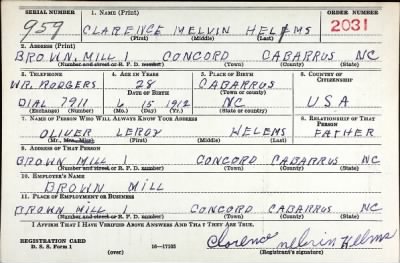 SERIAL NUMBER 1. NAME (Print) ORDER NUMBER
959 CLARENCE MELVIN HELMS 2031
(First) (Middle) (Last)
2. ADDRESS (Print)
BROWN. MILL CONCORD CABARRUS NC
(Number and street or R. F. D. number) (Town) (County) (State)
3. TELEPHONE 4. AGE IN YEARS 5. PLACE OF BIRTH 6. COUNTRY OF CITIZENSHIP
WR. RODGERS 28 CABARRUS
DATE OF BIRTH (Town or county)
DIAL 7911 6 15 1912 NC USA
(Exchange) (Number) (Mo.) (Day) (Yr.) (State or country)
7. NAME OF PERSON WHO WILL ALWAYS KNOW YOUR ADDRESS 8. RELATIONSHIP OF THAT PERSON
OLIVER LEROY HELEMS FATHER
(Mr., Mrs., Miss) (First) (Middle) (Last)
9. ADDRESS OF THAT PERSON
BROWN MILL 1 CONCORD CABARRUS NC
(Number and street or R. F. D. number) (Town) (County) (State)
10. EMPLOYER'S NAME
BROWN MILL
11. PLACE OF EMPLOYMENT OR BUSINESS
BROWN MILL 1 CONCORD CABARRUS NC
(Number and street or R. F. D. number) (Town) (County) (State)
I AFFIRM THAT I HAVE VERIFIED ABOVE ANSWERS AND THAT THEY ARE TRUE.
REGISTRATION CARD
D. S. S. Form 1 (over) 16—17105 Clarence Melvin Helms
(Registrant's signature)